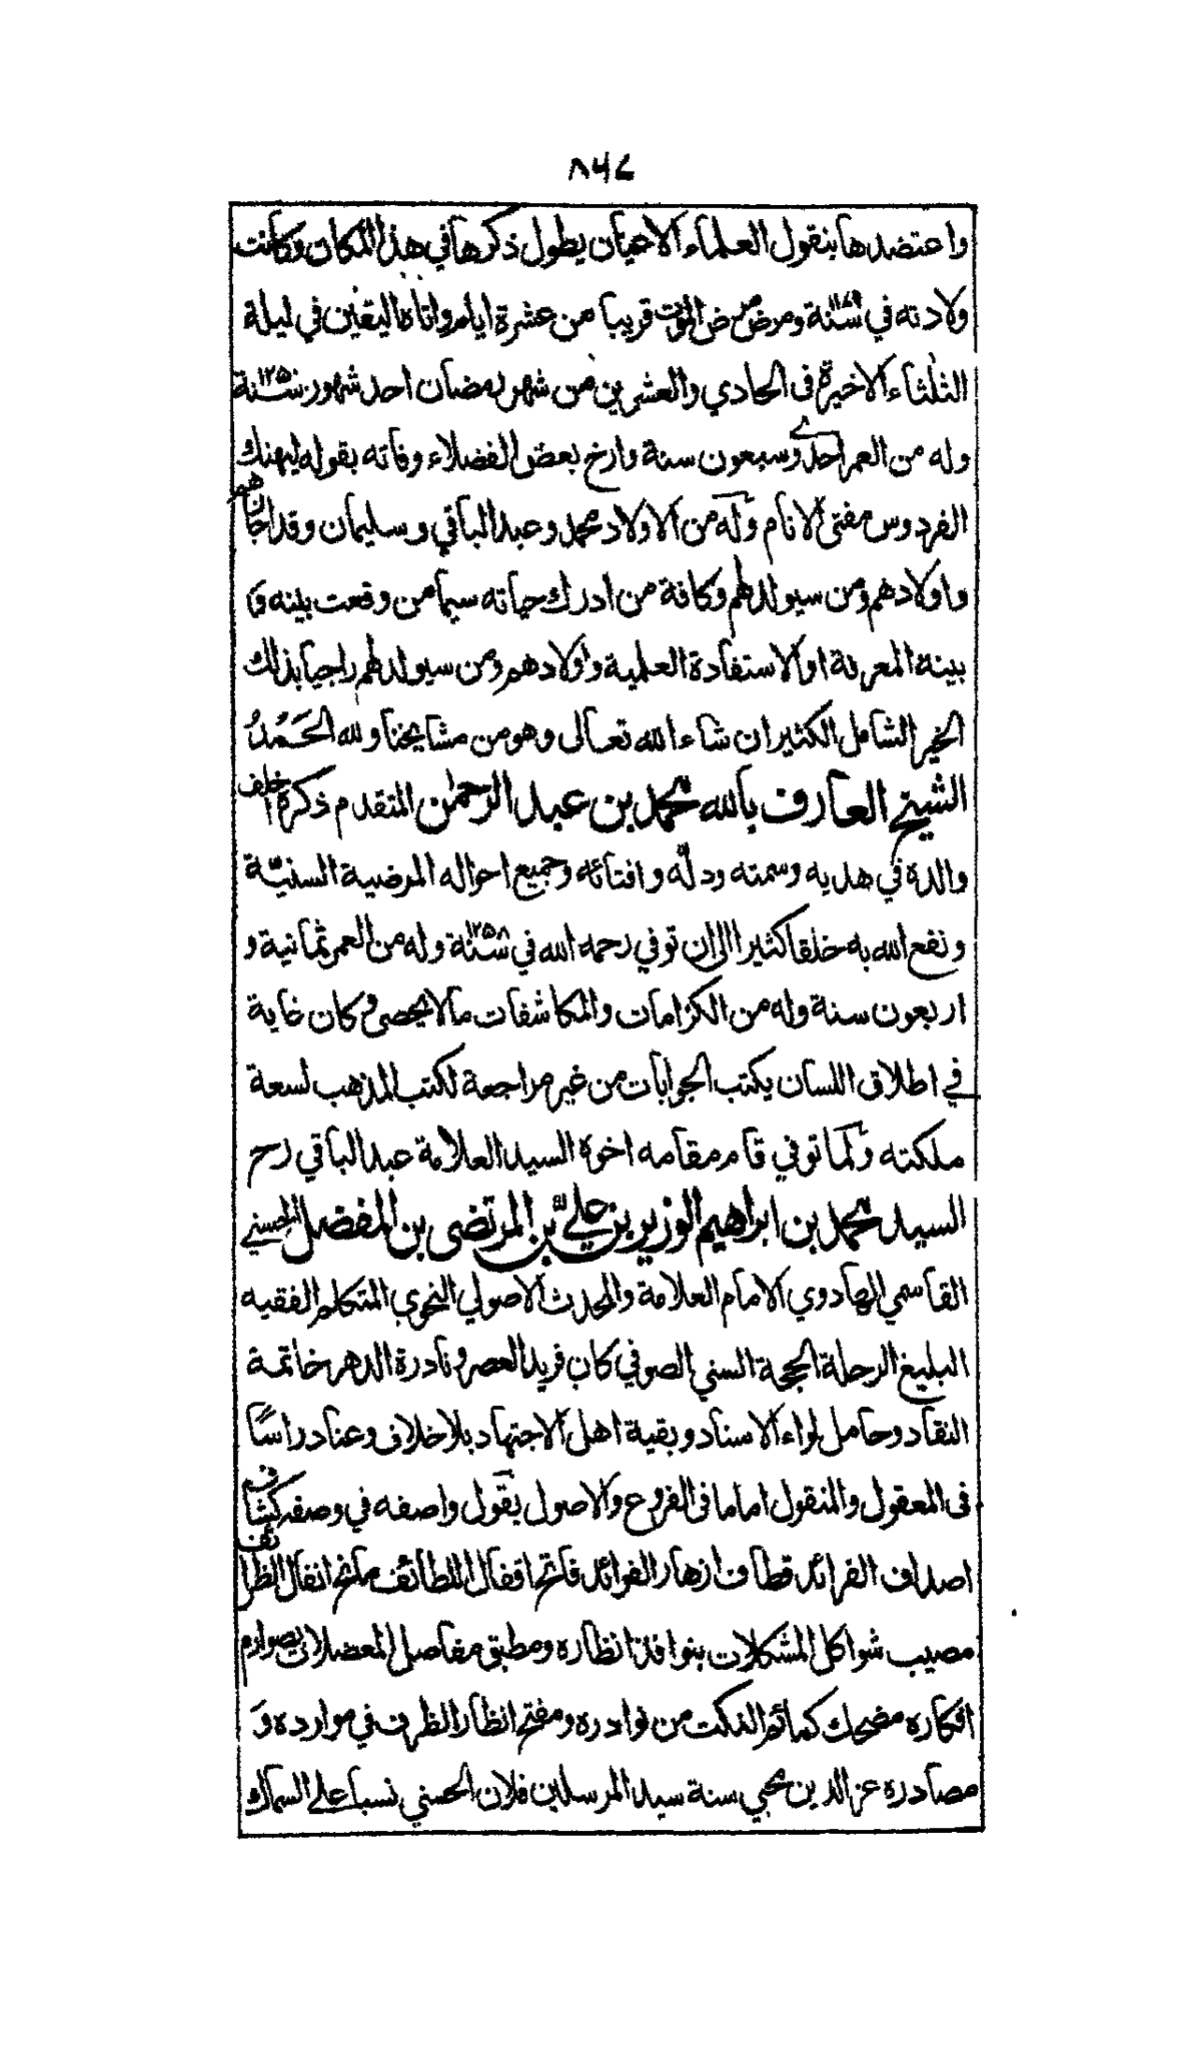 ٨٦٧
واعتضدها بنقول العلماء الاعيان يطول ذكرها في هذا المكان وكانت
ولادته في سنة ١١٧٩ ومرض مرض الموت قريبا من عشرة ايام واتاه اليقين في ليلة
الثلثاء الاخيرة فى الحادي والعشرين من شهر رمضان احد شهور سنة ١٢٥٠
وله من العمر احدى وسبعون سنة وارخ بعض الفضلاء وفاته بقوله ليهنك
الفردوس مفتى الانام وله من الاولاد محمد وعبد الباقي وسليمان وقد اجازهم
واولادهم ومن سيولد لهم وكافة من ادرك حياته سيما من وقعت بينه و
بينة المعرفة او الاستفادة العلمية واولادهم ومن سيولد لهم راجيا بذلك
الخير الشامل الكثير ان شاء الله تعالى وهو من مشايخنا ولله الحَمْدُ
الشيخ العارف بالله محمد بن عبد الرحمٰن المتقدم ذكره اخلف
والده في هديه وسمته ودلّه وافتائه وجميع احواله المرضية السنيّة
ونفع الله به خلقا كثيرا الى ان توفي رحمه الله في سنة ١٢٥٨ وله من العمر ثمانية و
اربعون سنة وله من الكرامات والمكاشفات مالا يحصى وكان غاية
في اطلاق اللسان يكتب الجوابات من غير مراجعة لكتب المذهب لسعة
ملكته ولما توفي قام مقامه اخوه السيد العلامة عبد الباقي رح
السيد محمد بن ابراهيم الوزير بن علي بن المرتضى بن المفضل الحسني
القاسمي الهادوي الامام العلامة والمحدث الاصولي النحوي المتكلم الفقيه
البليغ الرحلة الحجة السني الصوفي كان فريد العصر ونادرة الدهر خاتمة
النقاد وحامل لواء الاسناد وبقية اهل الاجتهاد بلا خلاف وعناد راسًا
فى المعقول والمنقول اماما فى الفروع والاصول يقول واصفه في وصفه كشاف
اصداف الفرائد قطاف ازهار الفوائد فاتح اقفال اللطائف مانح انفال الظرائف
مصيب شواكل المشكلات بنوافذ انظاره ومطبق مفاصل المعضلات بصوارم
افكاره مضحك كمائم النكت من نوادره ومفتح انظار الظرف في موارده و
مصادره عز الدين محيي سنة سيد المرسلين فلان الحسني نسبا علي السماك